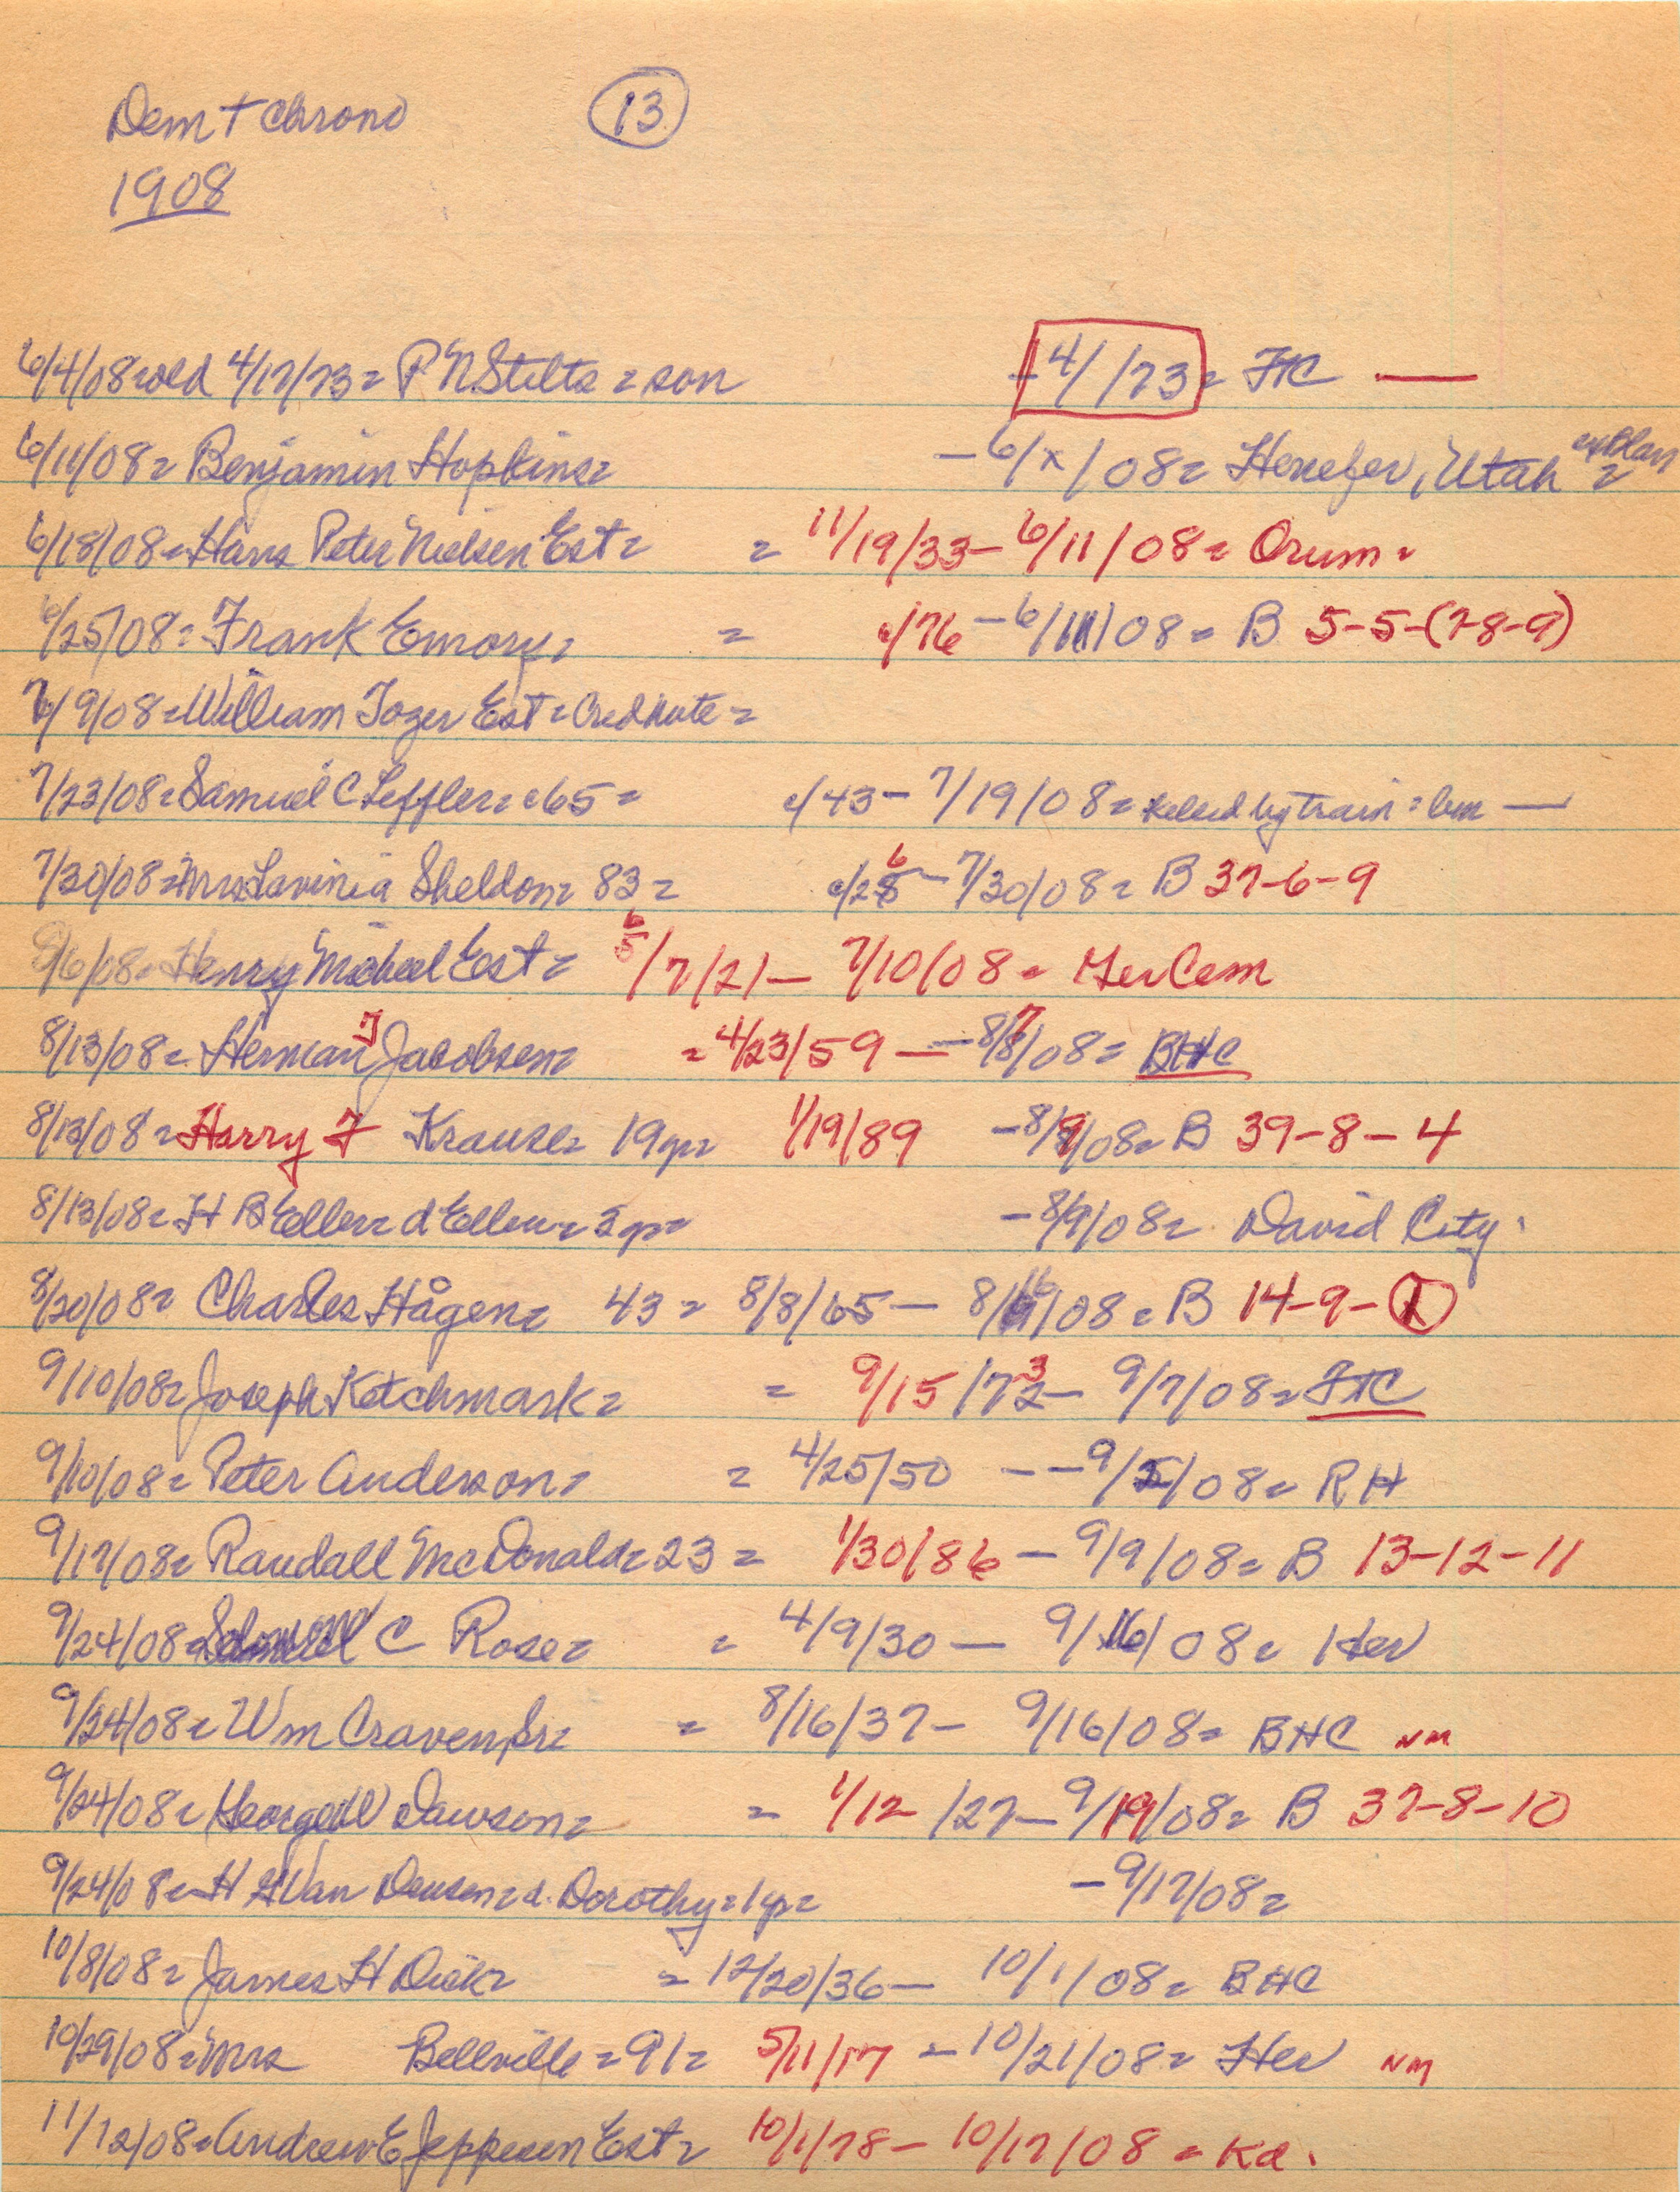 Dem + Chrono 13
1908
6/4/08 = old 4/17/73 = P N Stilts = son - 4/ /73 = FtC —
6/11/08 = Benjamin Hopkins = - 6/x/08 = Henefer, Utah =
6/18/08 = Hans Peter Nielsen Est = = 11/19/33 - 6/11/08 = Orum =
6/25/08 = Frank Emory = = c/76 - 6/11/08 = B 5-5-(7-8-9)
7/9/08 = William Tozer Est = Cred Note =
7/23/08 = Samuel C Leffler = c65 = c/43 - 7/19/08 = killed by train = —
7/30/08 = Mrs Lavinia Sheldon = 83 = c/25 6 - 7/30/08 = B 37-6-9
8/6/08 = Henry Micheel Est = 6/5/7/21 - 7/10/08 = Her Cem
8/13/08 = Herman J Jacobsen = = 4/23/59 - 8/7/08 = BHC
8/13/08 = Harry F Krause = 19y = 1/19/89 - 8/9/08 = B 39-8-4
8/13/08 = H B Eller = d Ellen = - 8/9/08 = David City
8/20/08 = Charles Hågen = 43 = 8/8/65 - 8/16/08 = B 14-9-
9/10/08 = Joseph Ketchmark = = 9/15/72 3 - 9/7/08 = FtC
9/10/08 = Peter Anderson = = 4/25/50 - - 9/5/08 = RH
9/17/08 = Randall McDonald = 23 = 1/30/86 - 9/9/08 = B 13-12-11
9/24/08 = C Rose = = 4/9/30 - 9/16/08 = Her
9/24/08 = Wm Craven Sr = = 8/16/37 - 9/16/08 = BHC NM
9/24/08 = George W Dawson = = 1/12/27 - 9/19/08 = B 37-8-10
9/24/08 = H G Van Deusen = d. Dorothy = 1y = - 9/17/08 =
10/8/08 = James H Dick = = 12/20/36 - 10/1/08 = BHC
10/29/08 = Mrs Bellville = 91 = 5/11/17 - 10/21/08 = Her NM
11/12/08 = Andrew E Jeppesen Est = 10/1/78 - 10/17/08 = Ka.